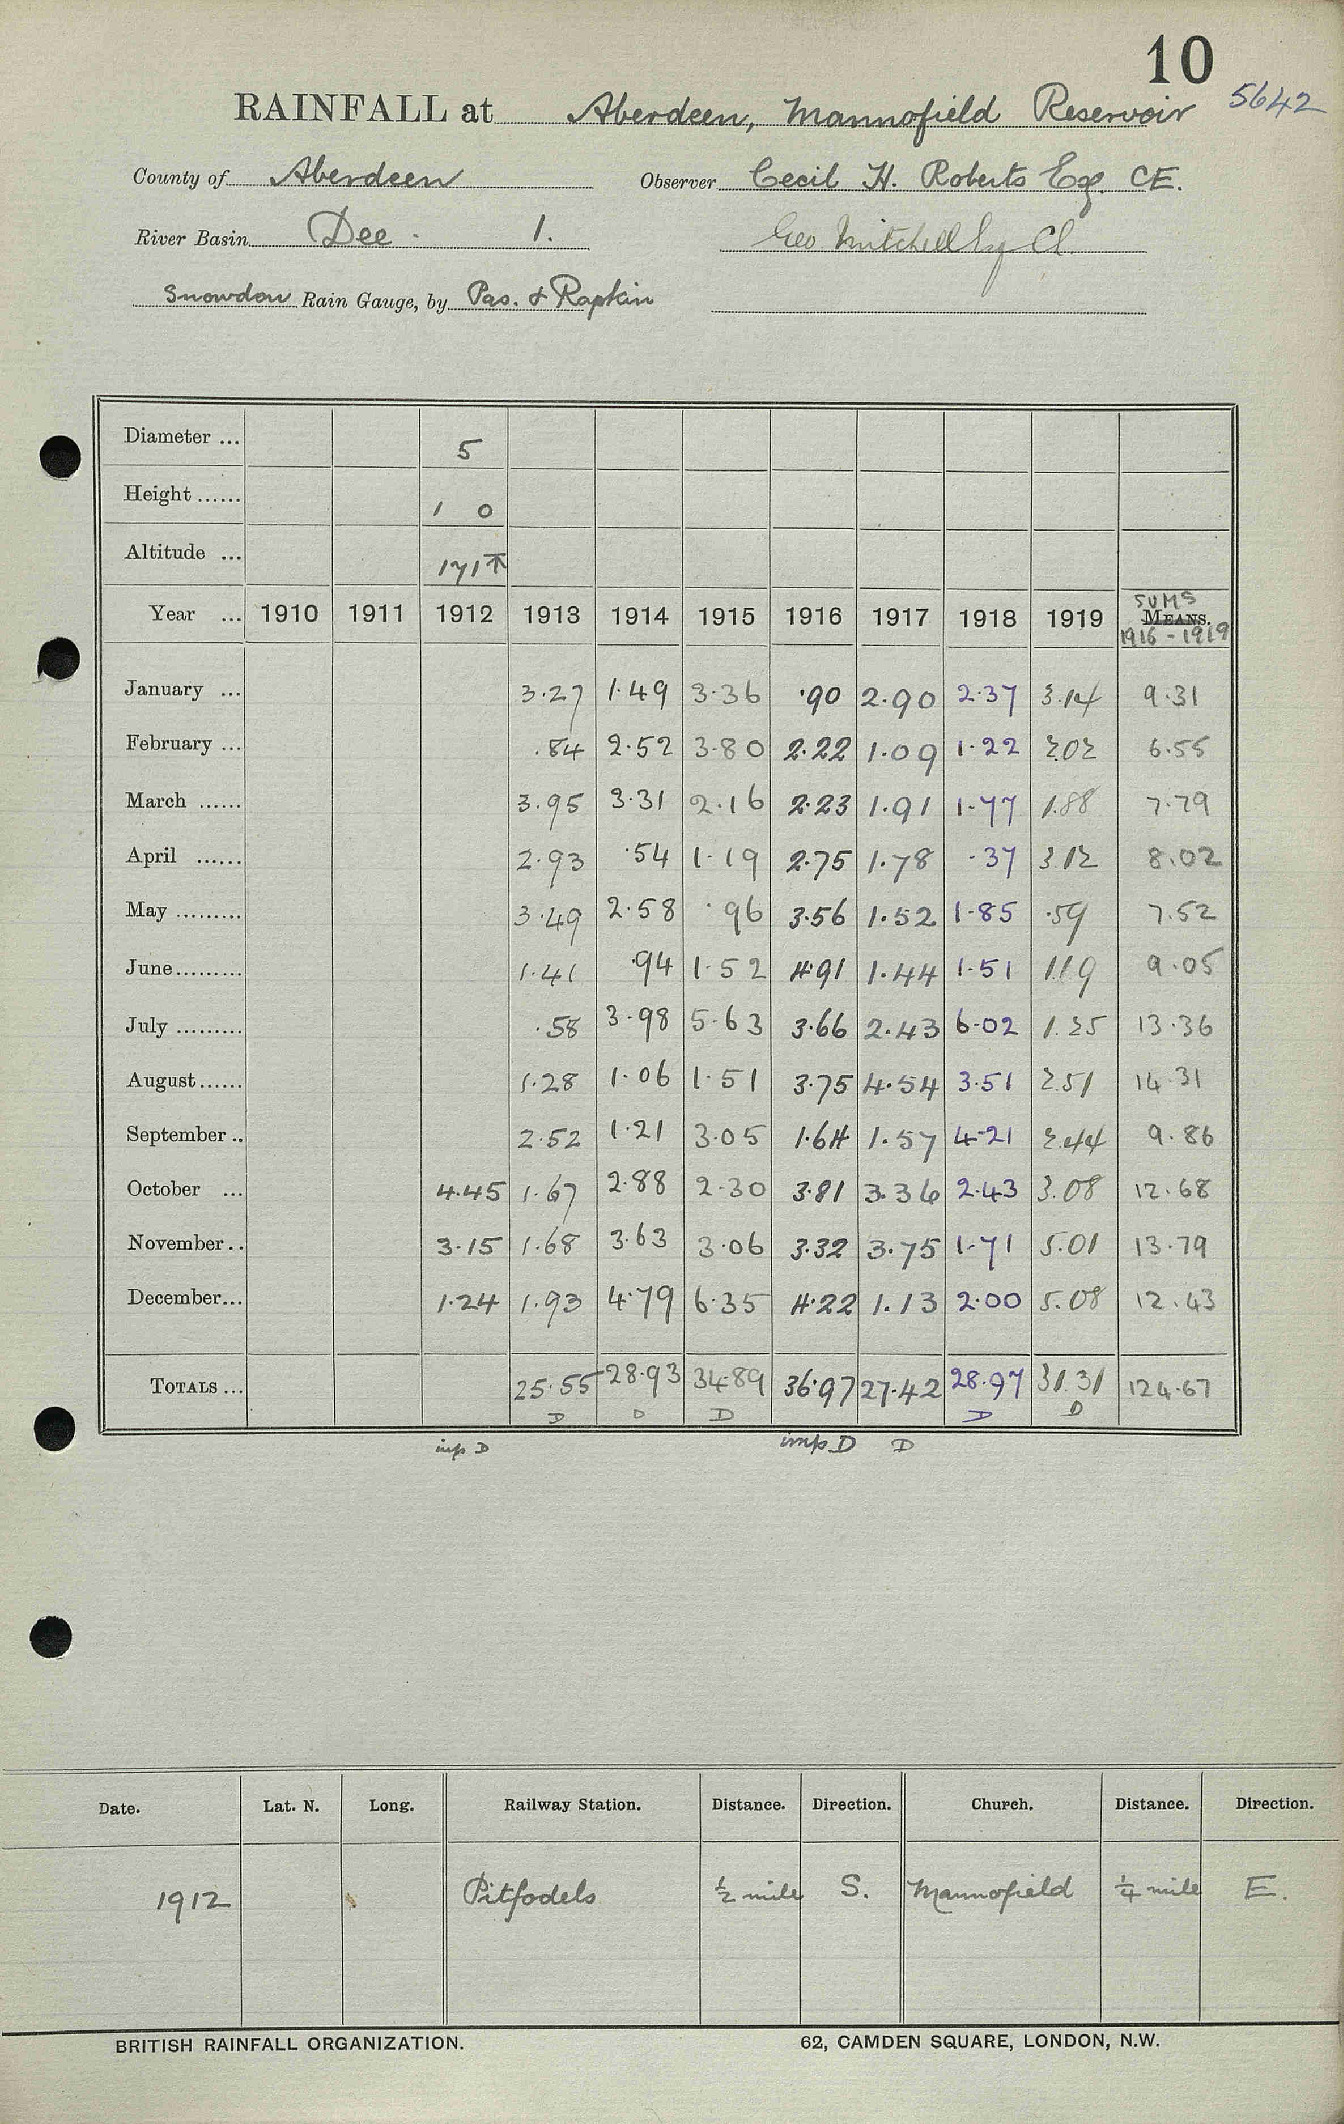 10
RAINFALL at Aberdeen, Mannofield Reservoir 5642
County of Aberdeen Observer Cecil H. Roberts Esq. CE.
River Basin Dee. 1. Geo Mitchell Esq CE
Snowdon Rain Gauge, by Pas. & Rapkin
Diameter ... 5
Height ...... 1 0
Altitude ... 171 T
SUMS
Year ... 1910 1911 1912 1913 1914 1915 1916 1917 1918 1919 MEANS.
1916 - 1919
January ... 3.27 1.49 3.36 .90 2.90 2.37 3.14 9.31
February ... .84 2.52 3.80 2.22 1.09 1.22 2.02 6.55
March ...... 3.95 3.31 2.16 2.23 1.91 1.77 1.88 7.79
April ...... 2.93 .54 1.19 2.75 1.78 .37 3.12 8.02
May ......... 3.49 2.58 .96 3.56 1.52 1.85 .59 7.52
June......... 1.41 .94 1.52 4.91 1.44 1.51 1.19 9.05
July ......... .58 3.98 5.63 3.66 2.43 6.02 1.25 13.36
August...... 1.28 1.06 1.51 3.75 4.54 3.51 2.51 14.31
September .. 2.52 1.21 3.05 1.64 1.57 4.21 2.44 9.86
October ... 4.45 1.67 2.88 2.30 3.81 3.36 2.43 3.08 12.68
November .. 3.15 1.68 3.63 3.06 3.32 3.75 1.71 5.01 13.79
December... 1.24 1.93 4.79 6.35 4.22 1.13 2.00 5.08 12.43
TOTALS ... 25.55 28.93 34.89 36.97 27.42 28.97 31.31 124.67
D D D D D
imp D imp D D
Date. Lat. N. Long. Railway Station. Distance. Direction. Church. Distance. Direction.
1912 Pitfodels ½ mile S. Mannofield ¼ mile E.
BRITISH RAINFALL ORGANIZATION. 62, CAMDEN SQUARE, LONDON, N.W.